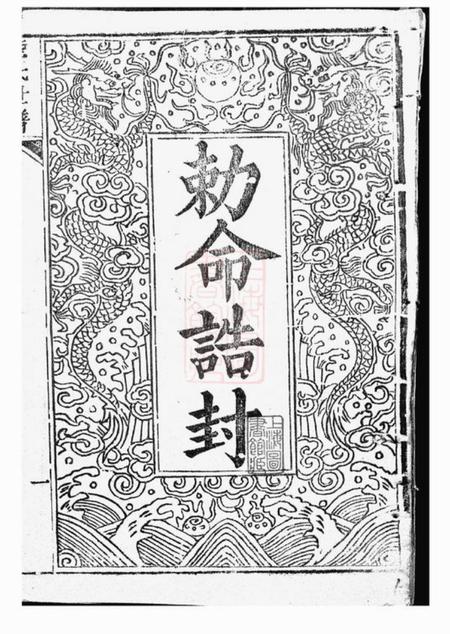 勅命誥封
上海圖
書館藏